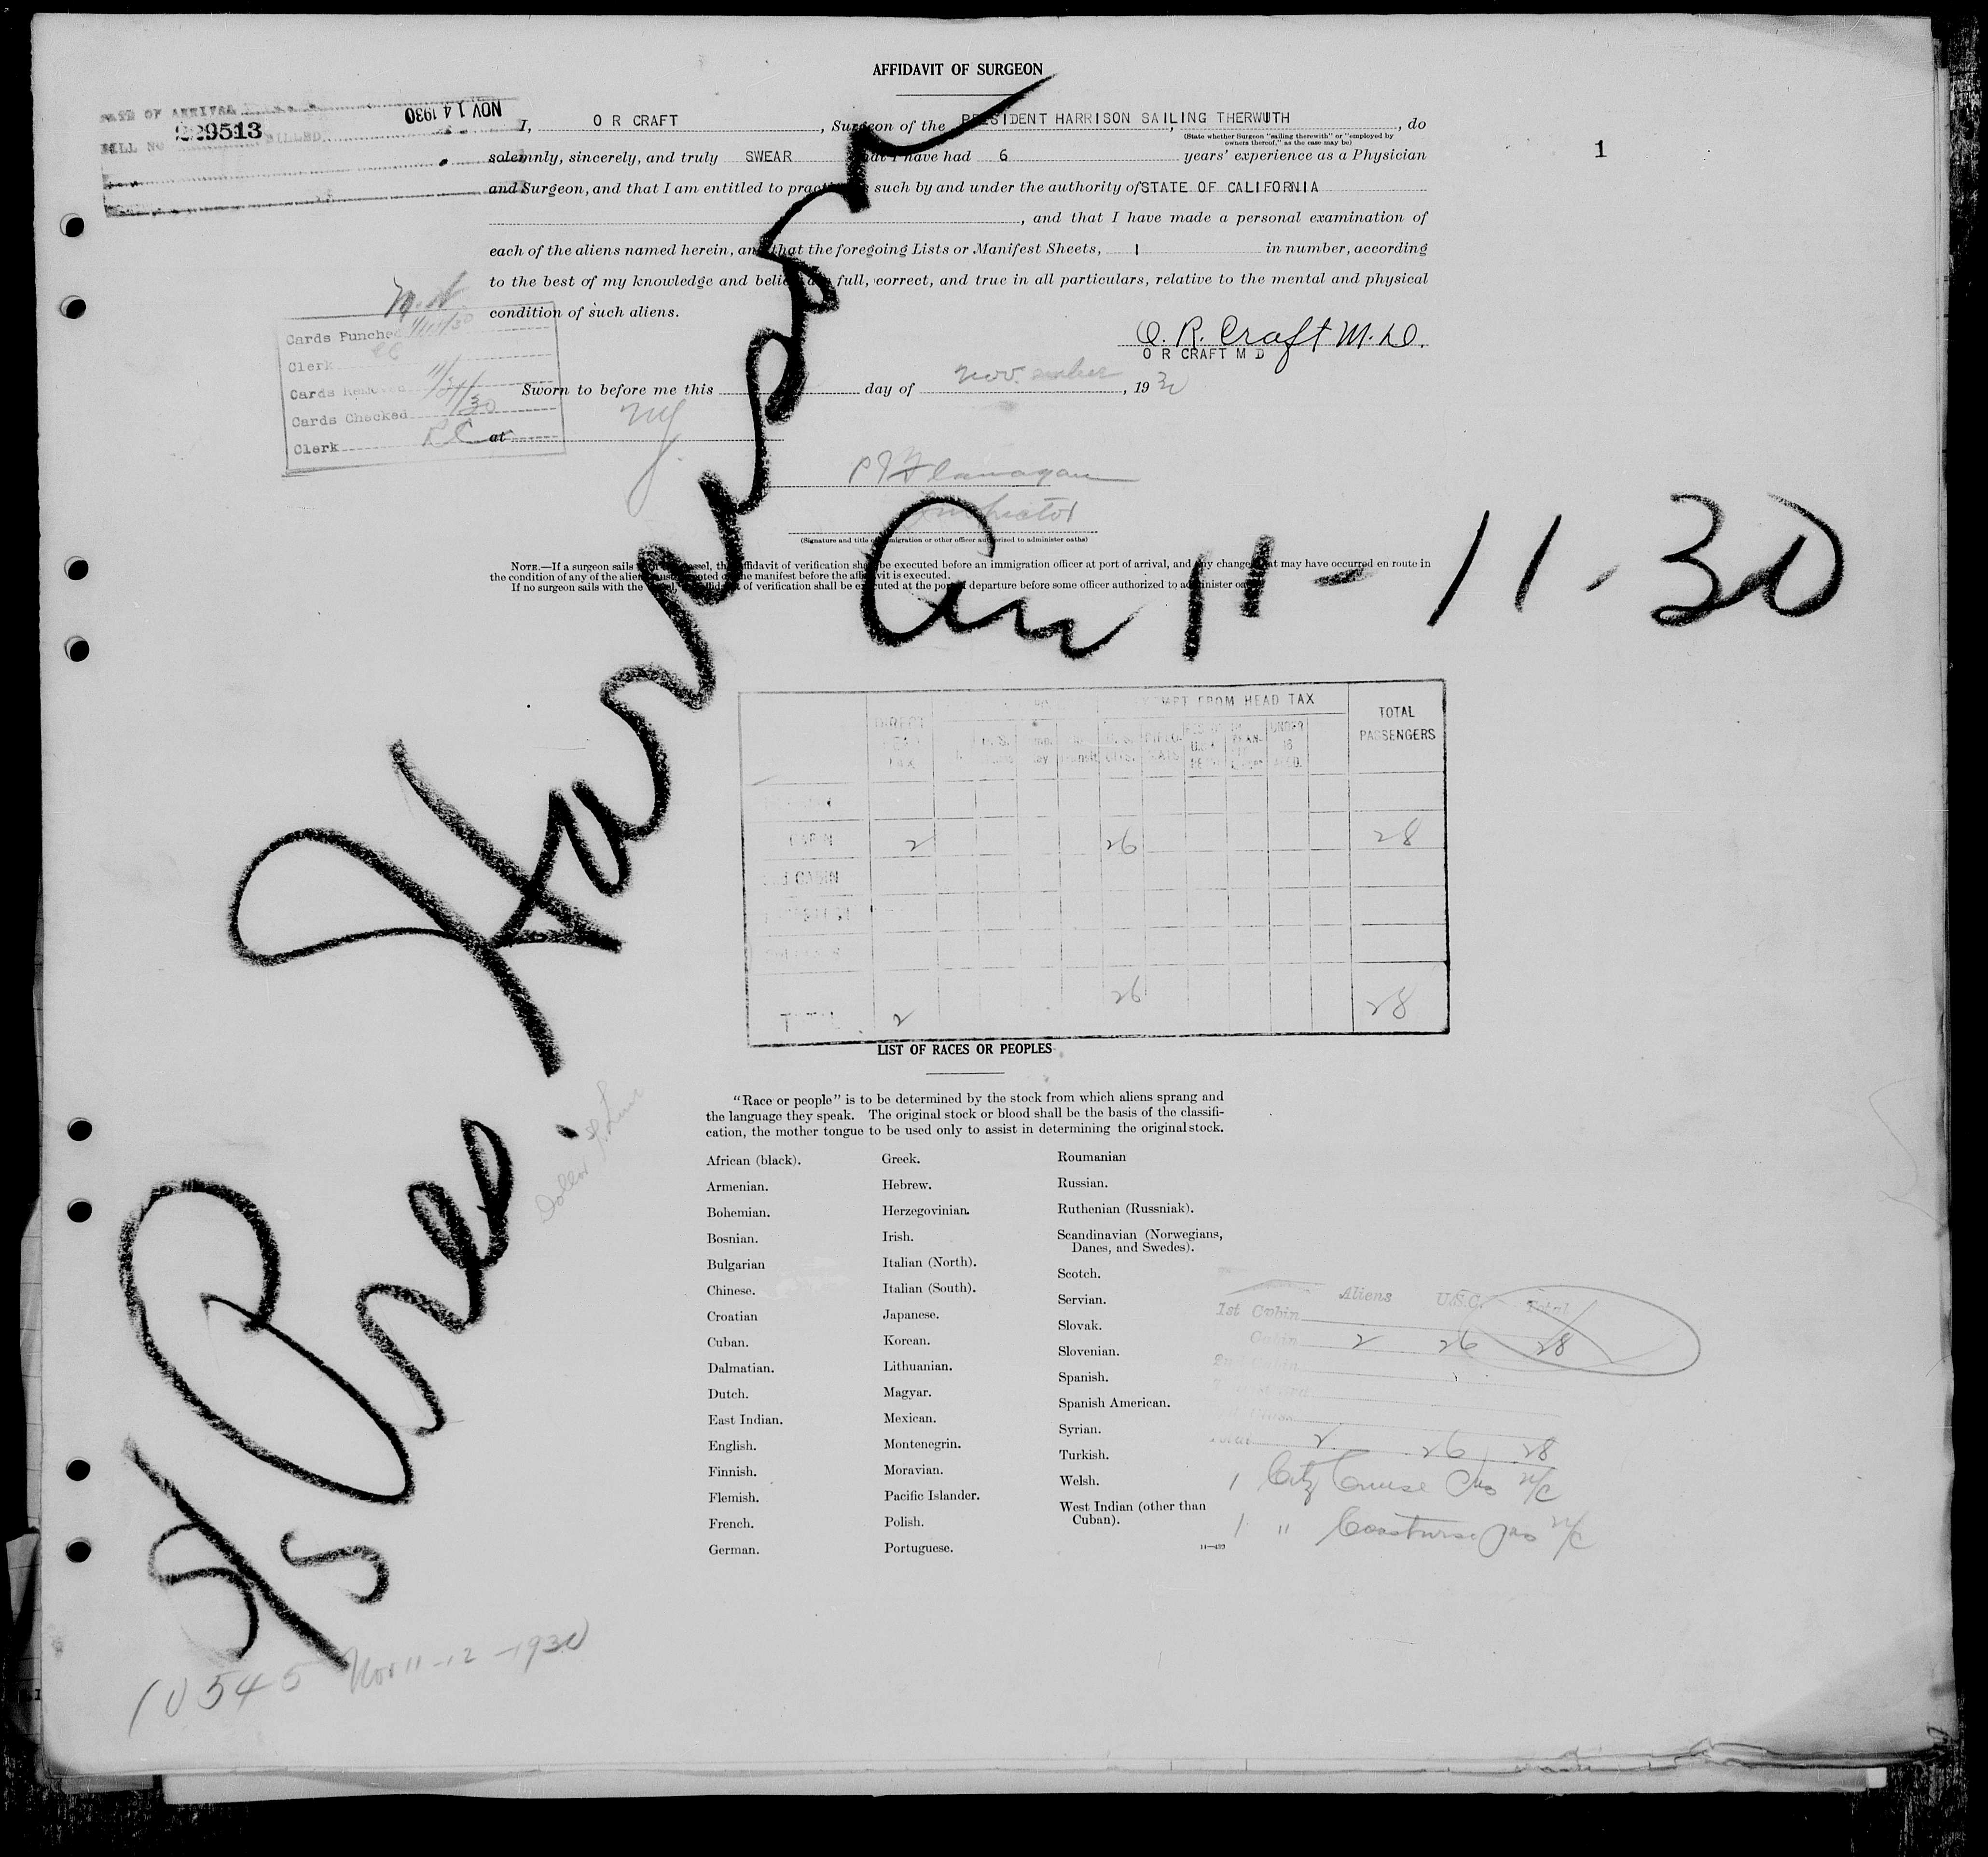 AFFIDAVIT OF SURGEON
DATE OF ARRIVAL NOV 14 1930
BILL NO 229513 BILLED
1
I, O R CRAFT, Surgeon of the PRESIDENT HARRISON SAILING THERWUTH, do
(State whether Surgeon "sailing therewith" or "employed by
owners thereof," as the case may be)
solemnly, sincerely, and truly SWEAR that I have had 6 years' experience as a Physician
and Surgeon, and that I am entitled to practice as such by and under the authority of STATE OF CALIFORNIA
, and that I have made a personal examination of
each of the aliens named herein, and that the foregoing Lists or Manifest Sheets, 1 in number, according
to the best of my knowledge and belief, are full, correct, and true in all particulars, relative to the mental and physical
condition of such aliens.
O. R. Craft M.D.
O R CRAFT M D
Cards Punched
Clerk
Cards Removed 11/24/30
Cards Checked
Clerk RC
Sworn to before me this day of November, 1930
at NY
P J Flanagan
Inspector
(Signature and title of immigration or other officer authorized to administer oaths)
NOTE.—If a surgeon sails with the vessel, the affidavit of verification shall be executed before an immigration officer at port of arrival, and any changes that may have occurred en route in
the condition of any of the aliens must be noted on the manifest before the affidavit is executed.
If no surgeon sails with the vessel, the affidavit of verification shall be executed at the port of departure before some officer authorized to administer oaths.
S/S Pres. Harrison
Arr 11-11-30
Dollar S. Line
EXEMPT FROM HEAD TAX
DIRECT HEAD TAX
UNDER 16
TOTAL PASSENGERS
CABIN 2 26 28
2nd CABIN
TOTAL 2 26 28
LIST OF RACES OR PEOPLES
"Race or people" is to be determined by the stock from which aliens sprang and
the language they speak. The original stock or blood shall be the basis of the classifi-
cation, the mother tongue to be used only to assist in determining the original stock.
African (black).
Armenian.
Bohemian.
Bosnian.
Bulgarian
Chinese.
Croatian
Cuban.
Dalmatian.
Dutch.
East Indian.
English.
Finnish.
Flemish.
French.
German.
Greek.
Hebrew.
Herzegovinian.
Irish.
Italian (North).
Italian (South).
Japanese.
Korean.
Lithuanian.
Magyar.
Mexican.
Montenegrin.
Moravian.
Pacific Islander.
Polish.
Portuguese.
Roumanian
Russian.
Ruthenian (Russniak).
Scandinavian (Norwegians,
Danes, and Swedes).
Scotch.
Servian.
Slovak.
Slovenian.
Spanish.
Spanish American.
Syrian.
Turkish.
Welsh.
West Indian (other than
Cuban).
Aliens U.S.C. Total
1st Cabin
Cabin 2 26 28
2nd Cabin
Total 2 26 28
1 Citz Cruise Pas n/c
1 " Coastwise Pas n/c
Nov 11-12-1930